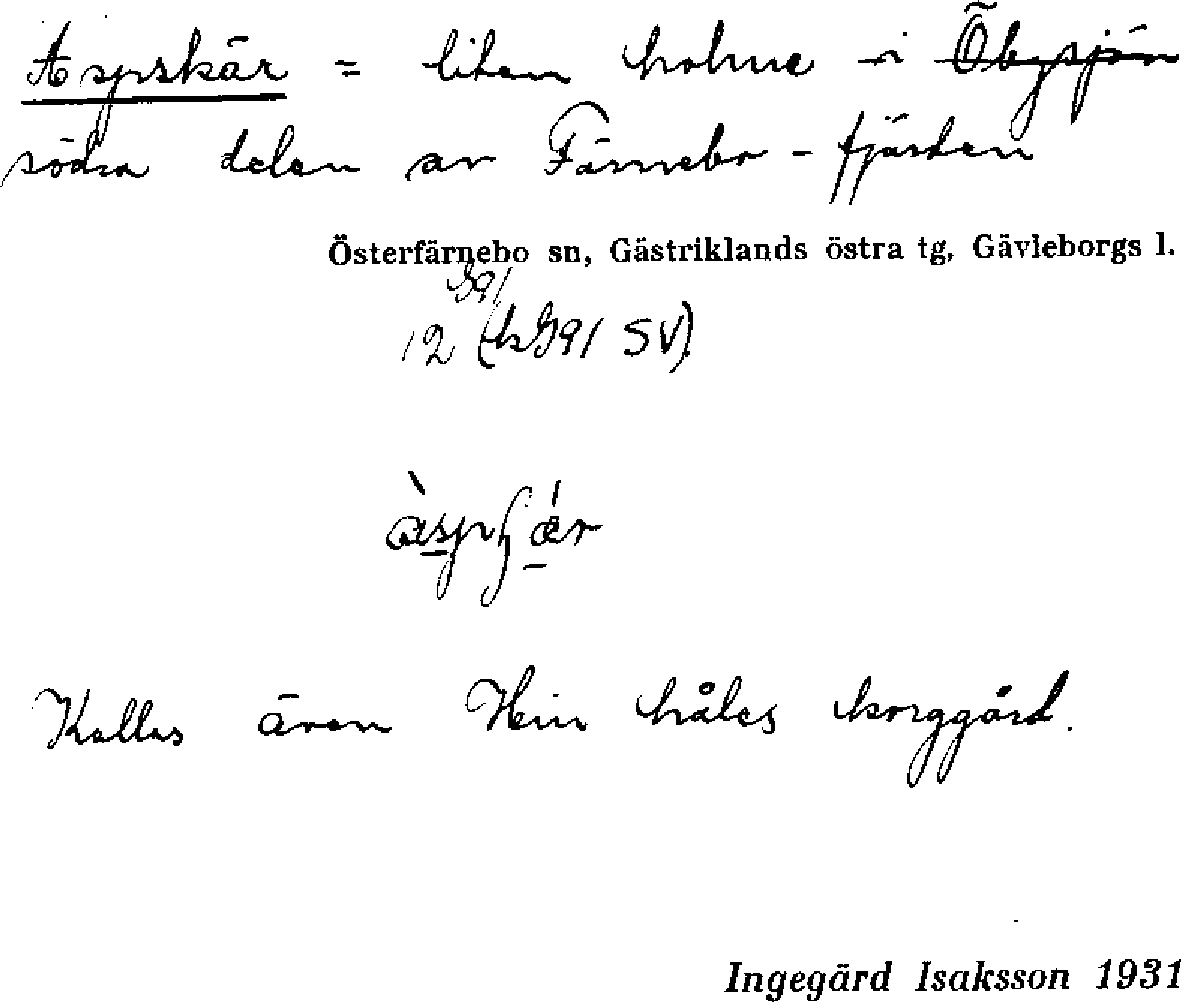 Aspskär = liten holme i Öbysjön
södra delen av Färnebo-fjärden
Österfärnebo sn, Gästriklands östra tg, Gävleborgs l.
12 (bl 91 SV)
Kallas även Hin håles korggård.
Ingegärd Isaksson 1931